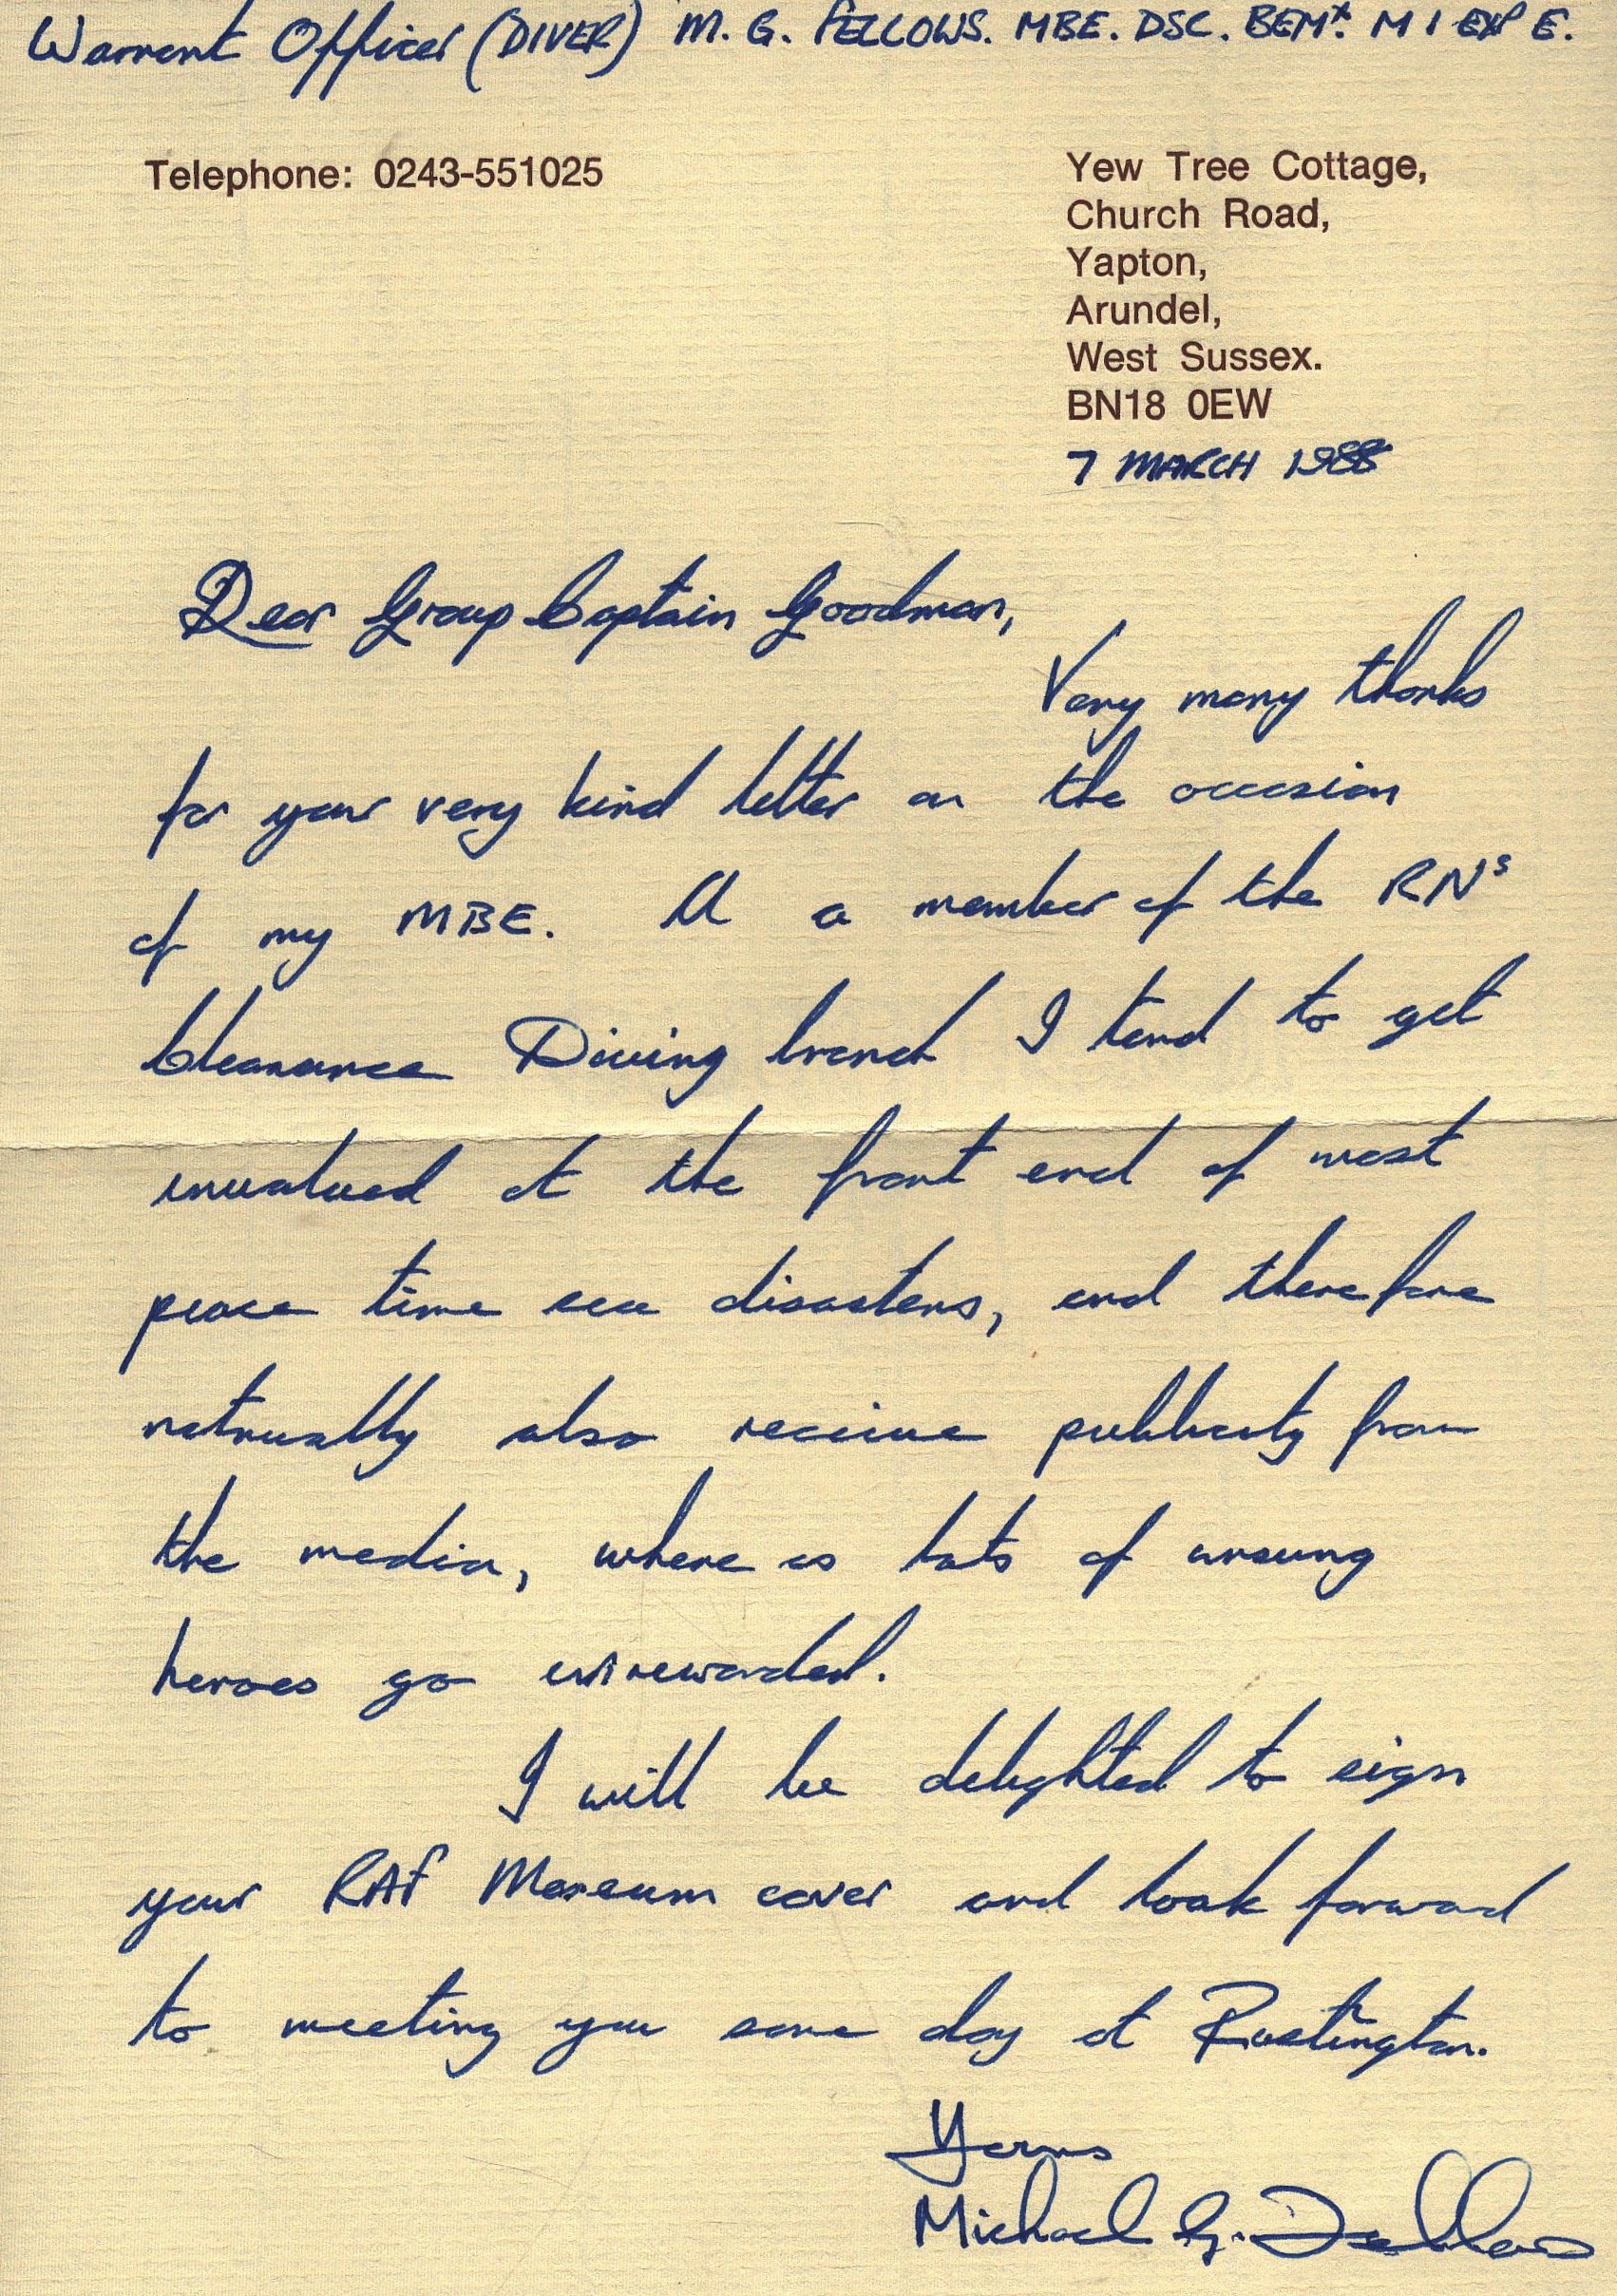 Warrant Officer (DIVER) M. G. FELLOWS. MBE. DSC. BEM*. M I EXP E.
Telephone: 0243-551025
Yew Tree Cottage,
Church Road,
Yapton,
Arundel,
West Sussex.
BN18 0EW
7 MARCH 1988
Dear Group Captain Goodman,
Very many thanks
for your very kind letter on the occasion
of my MBE. a member of the RNs
Clearance Diving branch I tend to get
involved at the front end of most
peace time sea disasters, and therefore
naturally also receive publicity from
the media, where as lots of unsung
heroes go unrewarded.
I will be delighted to sign
your RAF Museum cover and look forward
to meeting you some day at Rustington.
Yours
Michael G. Fellows